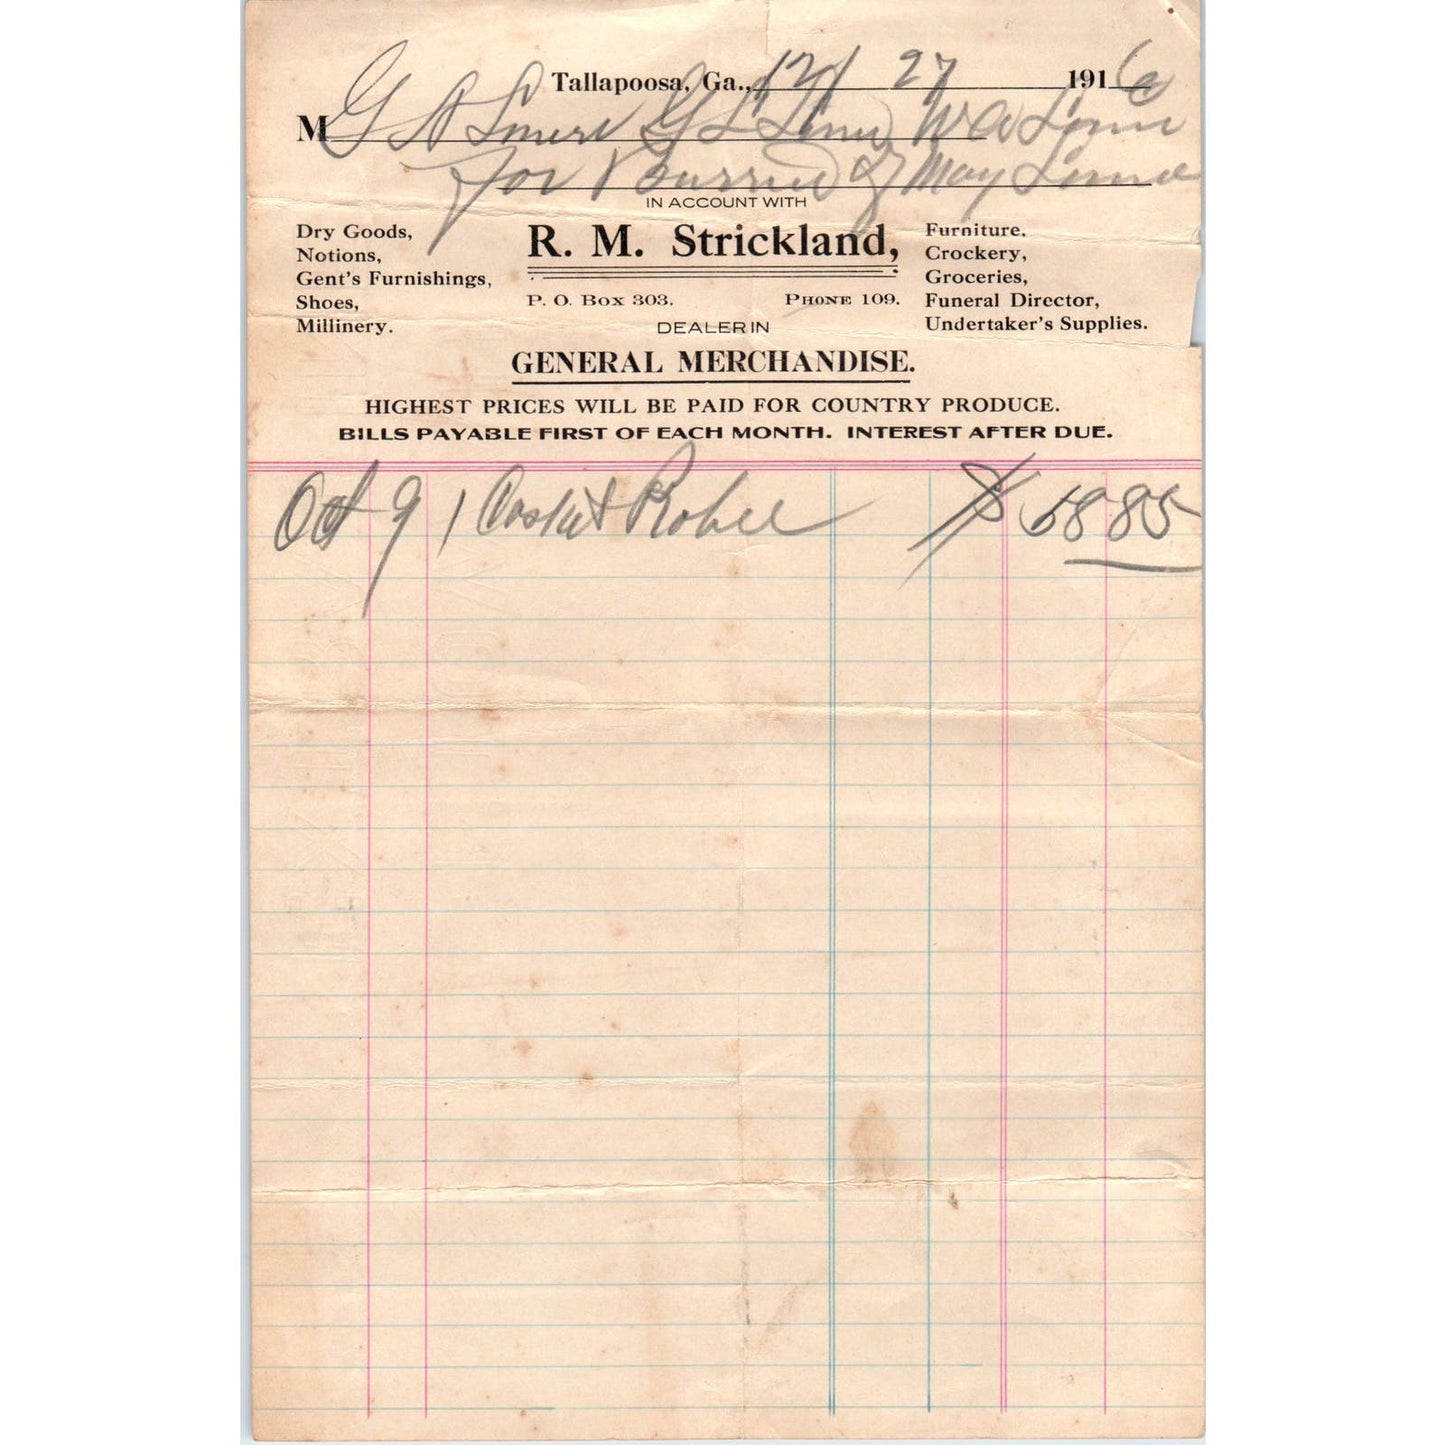 Tallapoosa, Ga., 12/ 27 1916
M G A G L W A
for of May
IN ACCOUNT WITH
R. M. Strickland,
P. O. Box 303. Phone 109.
Dry Goods,
Notions,
Gent's Furnishings,
Shoes,
Millinery.
Furniture.
Crockery,
Groceries,
Funeral Director,
Undertaker's Supplies.
DEALER IN
GENERAL MERCHANDISE.
HIGHEST PRICES WILL BE PAID FOR COUNTRY PRODUCE.
BILLS PAYABLE FIRST OF EACH MONTH. INTEREST AFTER DUE.
Oct 9 1 Casket & Robe $ 58 85